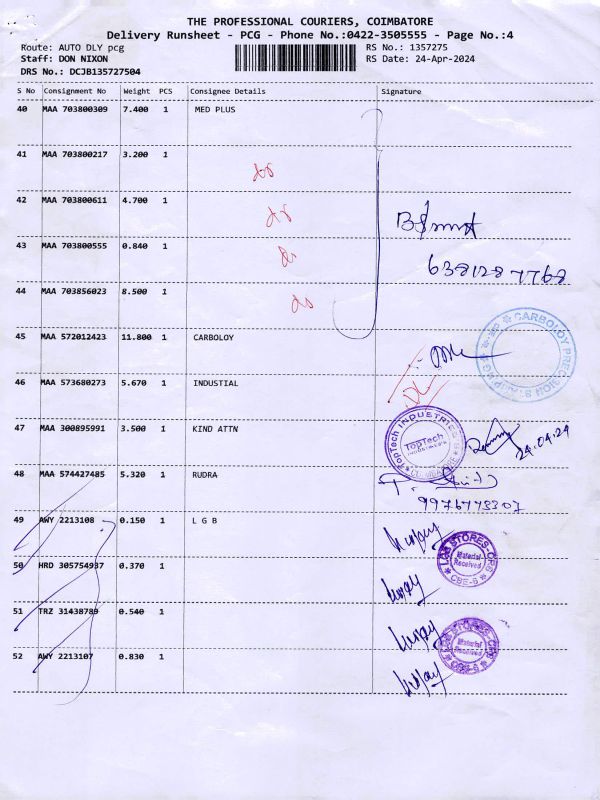 THE PROFESSIONAL COURIERS, COIMBATORE
Delivery Runsheet - PCG - Phone No.:0422-3505555 - Page No.:4
Route: AUTO DLY pcg
RS No.: 1357275
Staff: DON NIXON
RS Date: 24-Apr-2024
DRS No.: DCJB135727504
S No Consignment No Weight PCS Consignee Details Signature
40 MAA 703800309 7.400 1 MED PLUS
41 MAA 703800217 3.200 1
42 MAA 703800611 4.700 1
43 MAA 703800555 0.840 1
6381287768
44 MAA 703856023 8.500 1
45 MAA 572012423 11.800 1 CARBOLOY
46 MAA 573680273 5.670 1 INDUSTIAL
47 MAA 300895991 3.500 1 KIND ATTN
TopTech INDUSTRIES
TopTech
INDUSTRIES
24.04.24
48 MAA 574427485 5.320 1 RUDRA
9976773307
49 AWY 2213108 0.150 1 L G B
LGB STORES-CRB
Material
Received
CBE-6
50 HRD 305754937 0.370 1
51 TRZ 31438789 0.540 1
LGB STORES-CRB
Material
Received
CBE-6
52 AWY 2213107 0.830 1